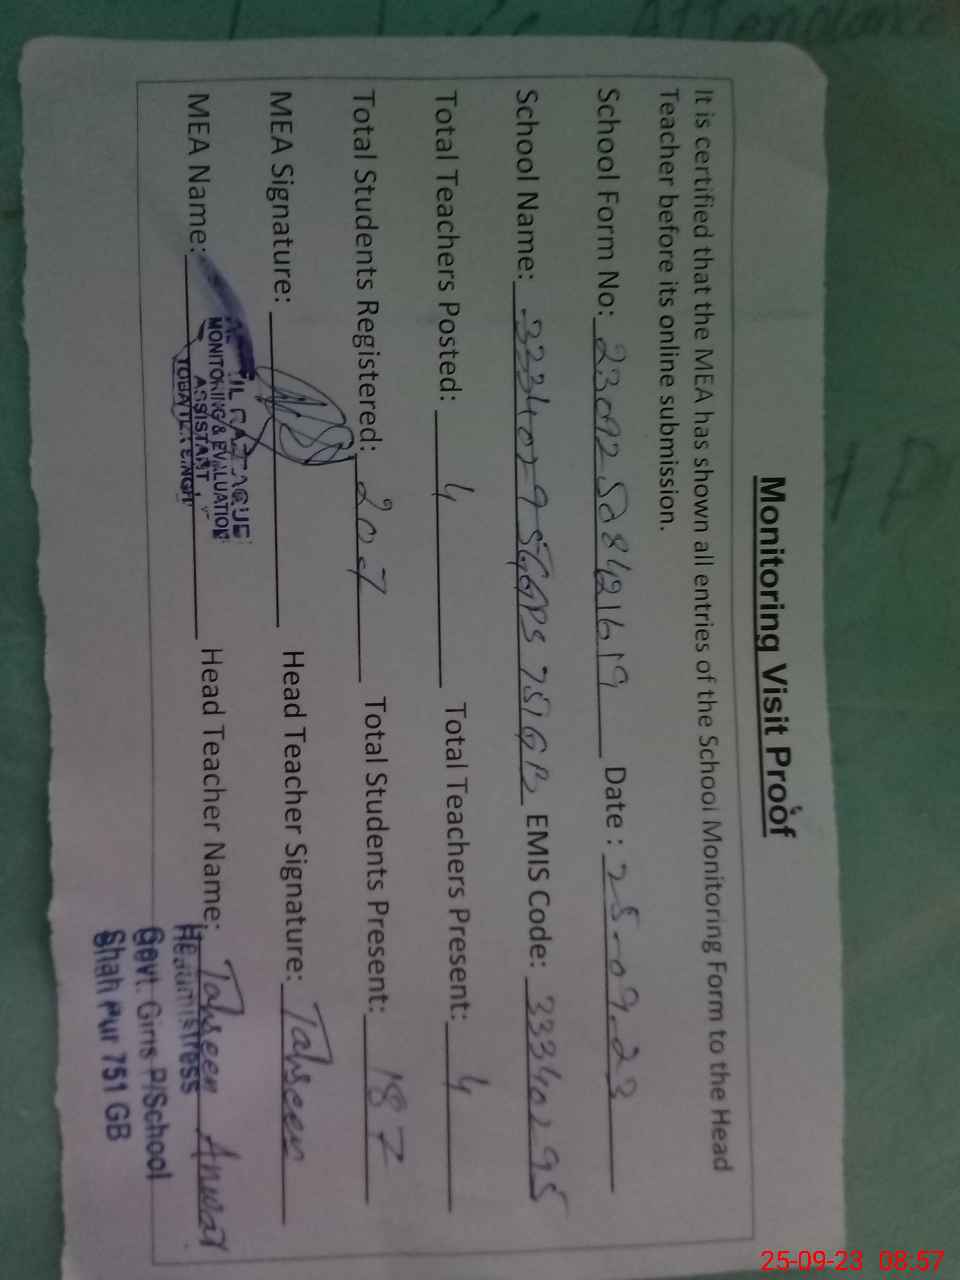 Attendance
Monitoring Visit Proof
It is certified that the MEA has shown all entries of the School Monitoring Form to the Head
Teacher before its online submission.
School Form No: Date : 25-09-23
School Name: GGPS 751 GB EMIS Code:
Total Teachers Posted: 4 Total Teachers Present: 4
Total Students Registered: 207 Total Students Present: 187
MEA Signature: Head Teacher Signature: Tahseen
MEA Name: Head Teacher Name: Tahseen Anwar
MONITORING & EVALUATION
ASSISTANT
Headmistress
Govt. Girls P/School
Shah Pur 751 GB
25-09-23 08:57